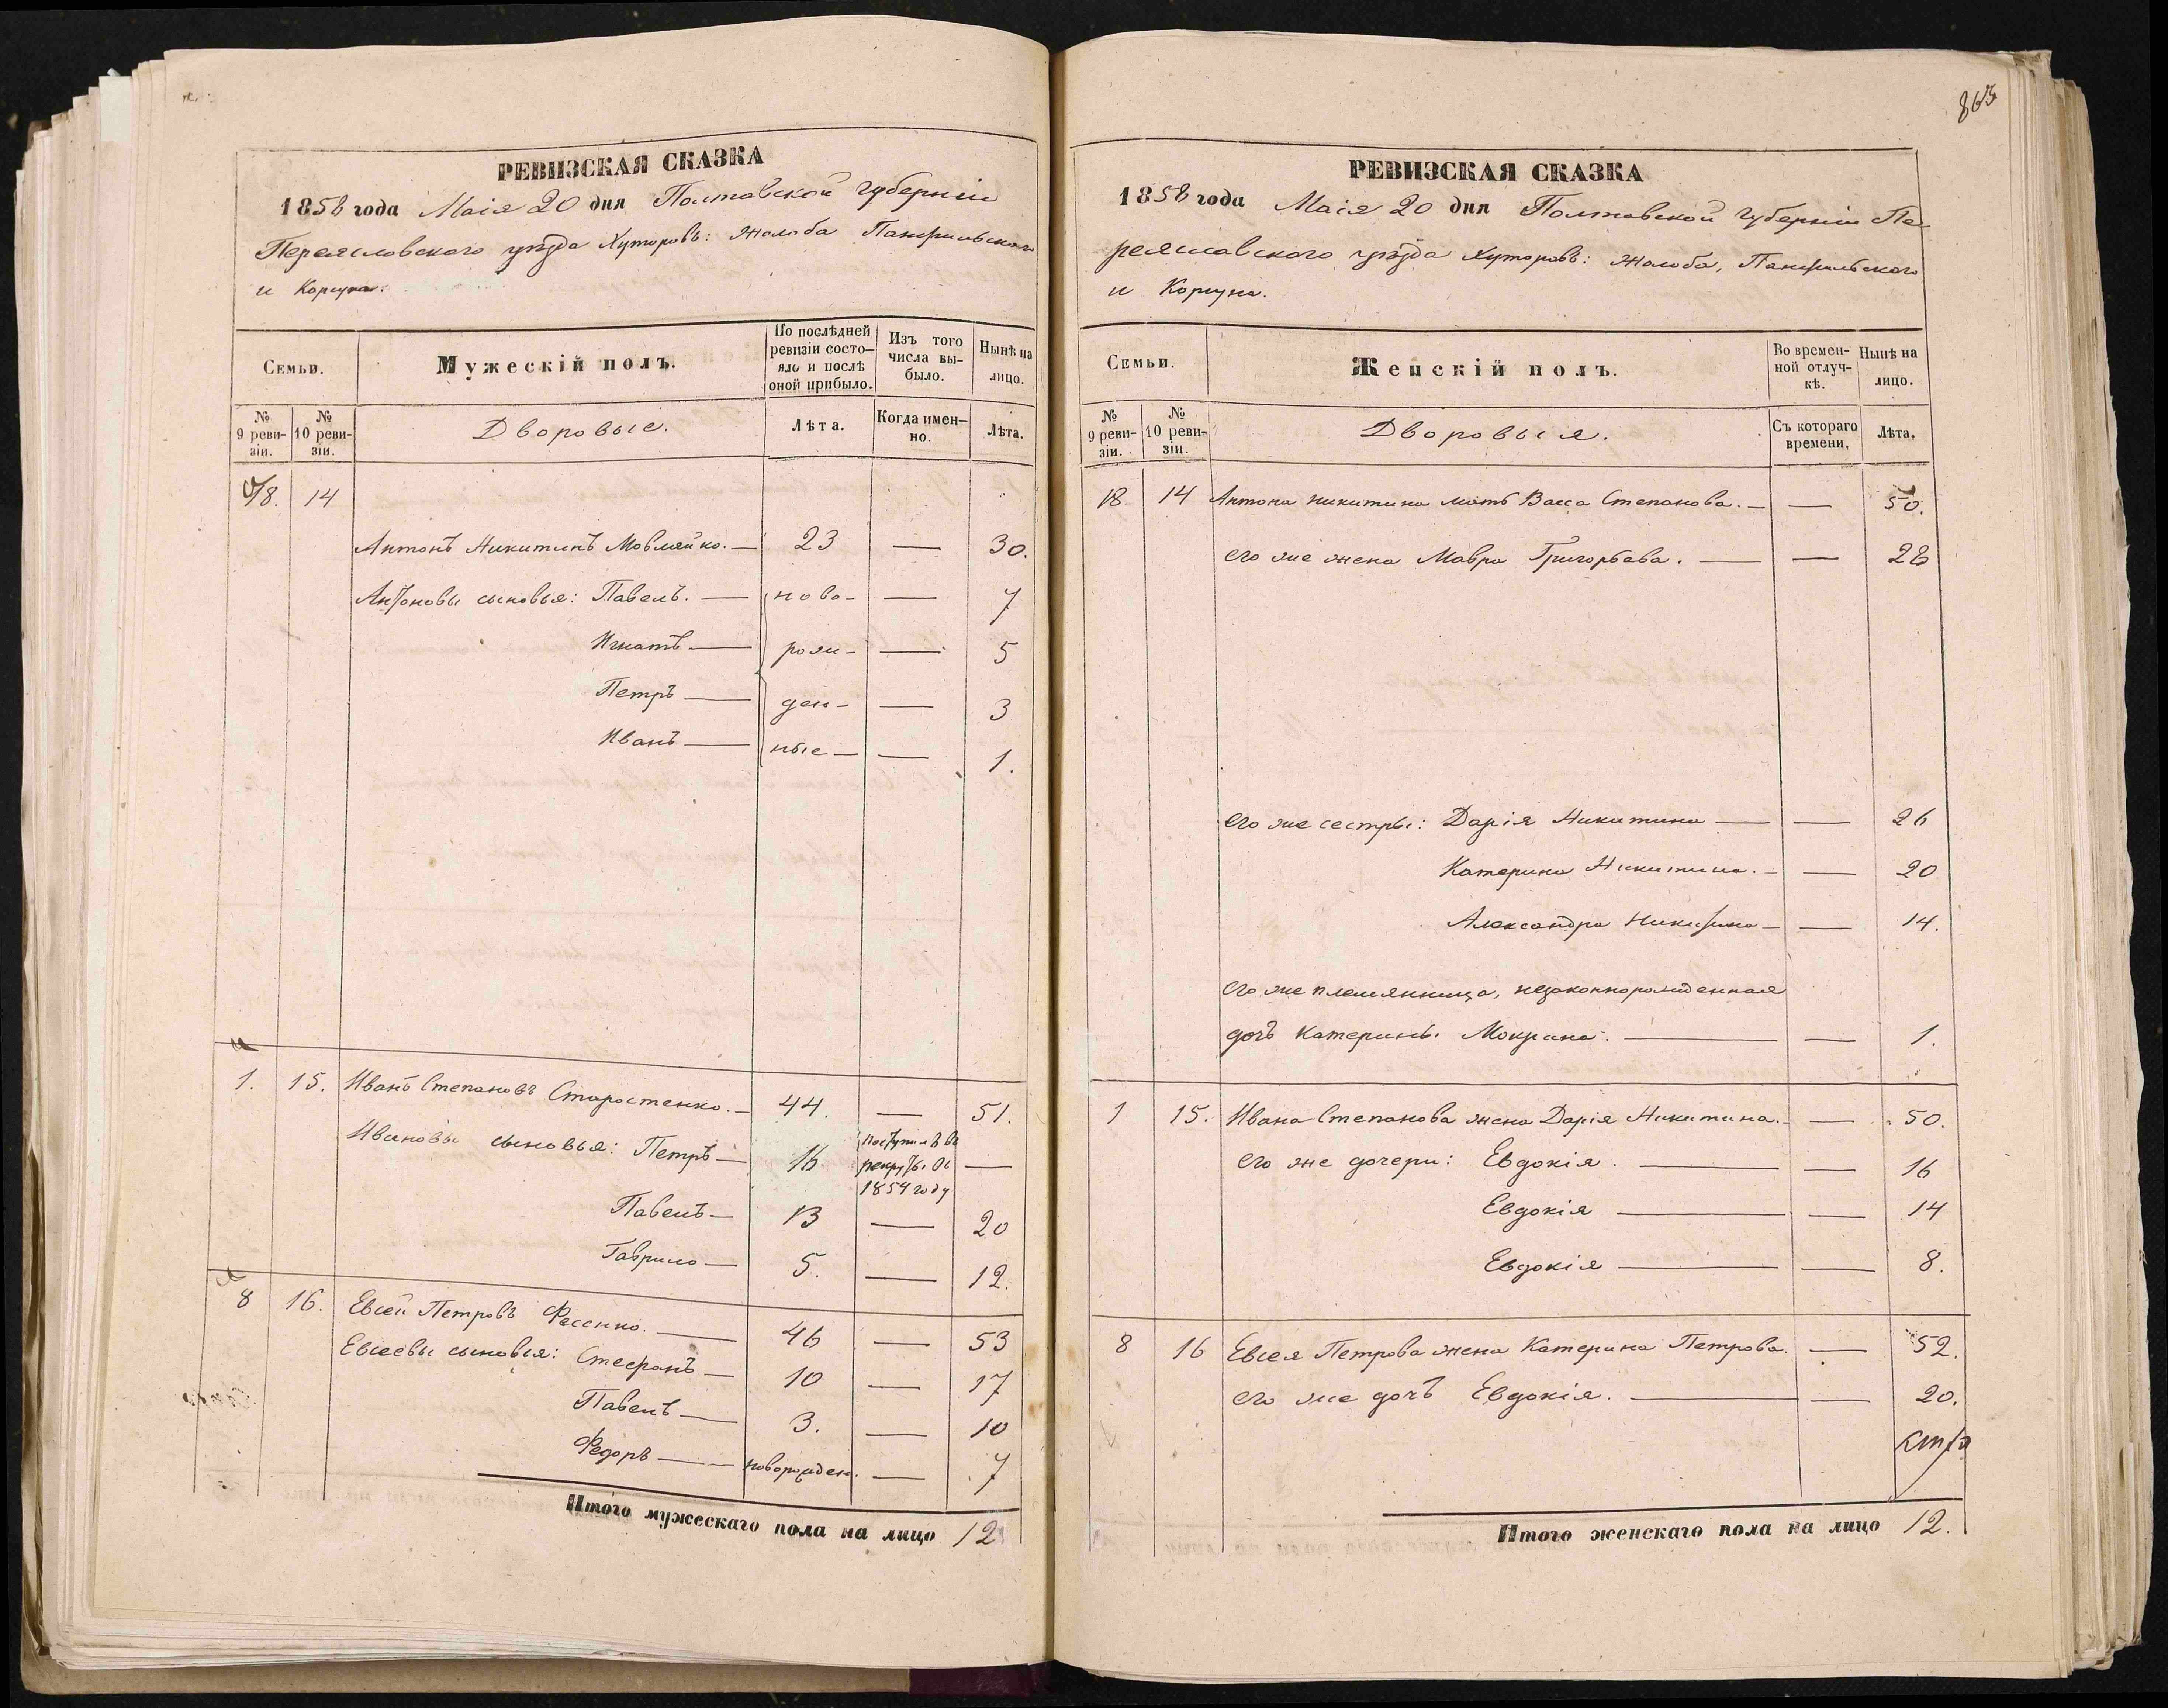 РЕВИЗСКАЯ СКАЗКА
1858 года Маія 20 дня Полтавской губерніи
Переясловского уѣзда Хуторовъ: Жолоба Панфильского
и Корсуна.
Семьи.
Мужескій полъ.
По послѣдней ревизіи состояло и послѣ оной прибыло.
Изъ того числа выбыло.
Нынѣ на лицо.
№ 9 ревизіи.
№ 10 ревизіи.
Дворовые.
Лѣта.
Когда именно.
Лѣта.
18. 14
Антонъ Никитинъ Мовляйко. — 23 — 30.
Антоновы сыновья: Павелъ. — ново- — 7
Игнатъ — рож- — 5
Петръ — ден- — 3
Иванъ — ные — — 1.
1. 15. Иванъ Степановъ Старостенко. — 44. — 51.
Ивановы сыновья: Петръ — 16 поступилъ въ рекруты въ 1854 году —
Павелъ — 13 — 20
Гаврило — 5. — 12.
8 16. Евсей Петровъ Фесенко. — 46 — 53
Евсеевы сыновья: Стефанъ — 10 — 17
Павелъ — 3. — 10
Федоръ — новорожден. — 7
Итого мужескаго пола на лицо 12
865
РЕВИЗСКАЯ СКАЗКА
1858 года Маія 20 дня Полтавской губерніи Пе
реяславского уѣзда Хуторовъ: Жолоба, Панфильского
и Корсуна.
Семьи.
Женскій полъ.
Во временной отлучкѣ.
Нынѣ на лицо.
№ 9 ревизіи.
№ 10 ревизіи.
Дворовыя.
Съ котораго времени.
Лѣта.
18 14 Антона Никитина мать Васса Степанова. — — 50.
его же жена Мавра Григорьева. — — 28
его же сестры: Дарія Никитина — — 26
Катерина Никитина. — — 20
Александра Никитина — — 14.
его же племянница, незаконнорожденная
дочь Катерины Мокрина. — — 1.
1 15. Ивана Степанова жена Дарія Никитина. — — 50.
его же дочери: Евдокія. — — 16
Евдокія — — 14
Евдокія — — 8.
8 16 Евсея Петрова жена Катерина Петрова. — 52.
его же дочь Евдокія. — — 20.
Итого женскаго пола на лицо 12.